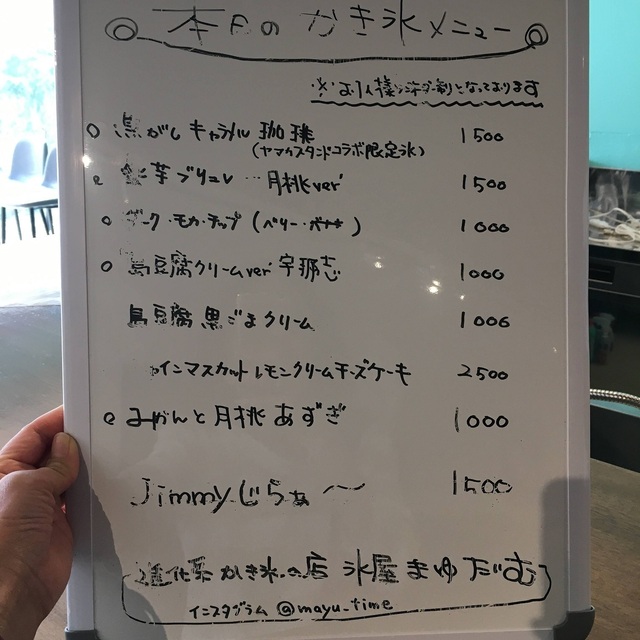 本日のかき氷メニュー
※お1人様1オーダー制となっております
焦がしキャラメル 珈琲 1500
(ヤマウスタンドコラボ限定氷)
芋ブリュレ…月桃ver 1500
ダーク・モカ・チップ (ベリー・バナナ) 1000
島豆腐クリームver 宇那志 1000
島豆腐 黒ごまクリーム 1000
シャインマスカットレモンクリームチーズケーキ 2500
みかんと月桃あずき 1000
Jimmyじらぁ〜 1500
進化系かき氷の店 氷屋まゆたいむ
インスタグラム @mayu_time